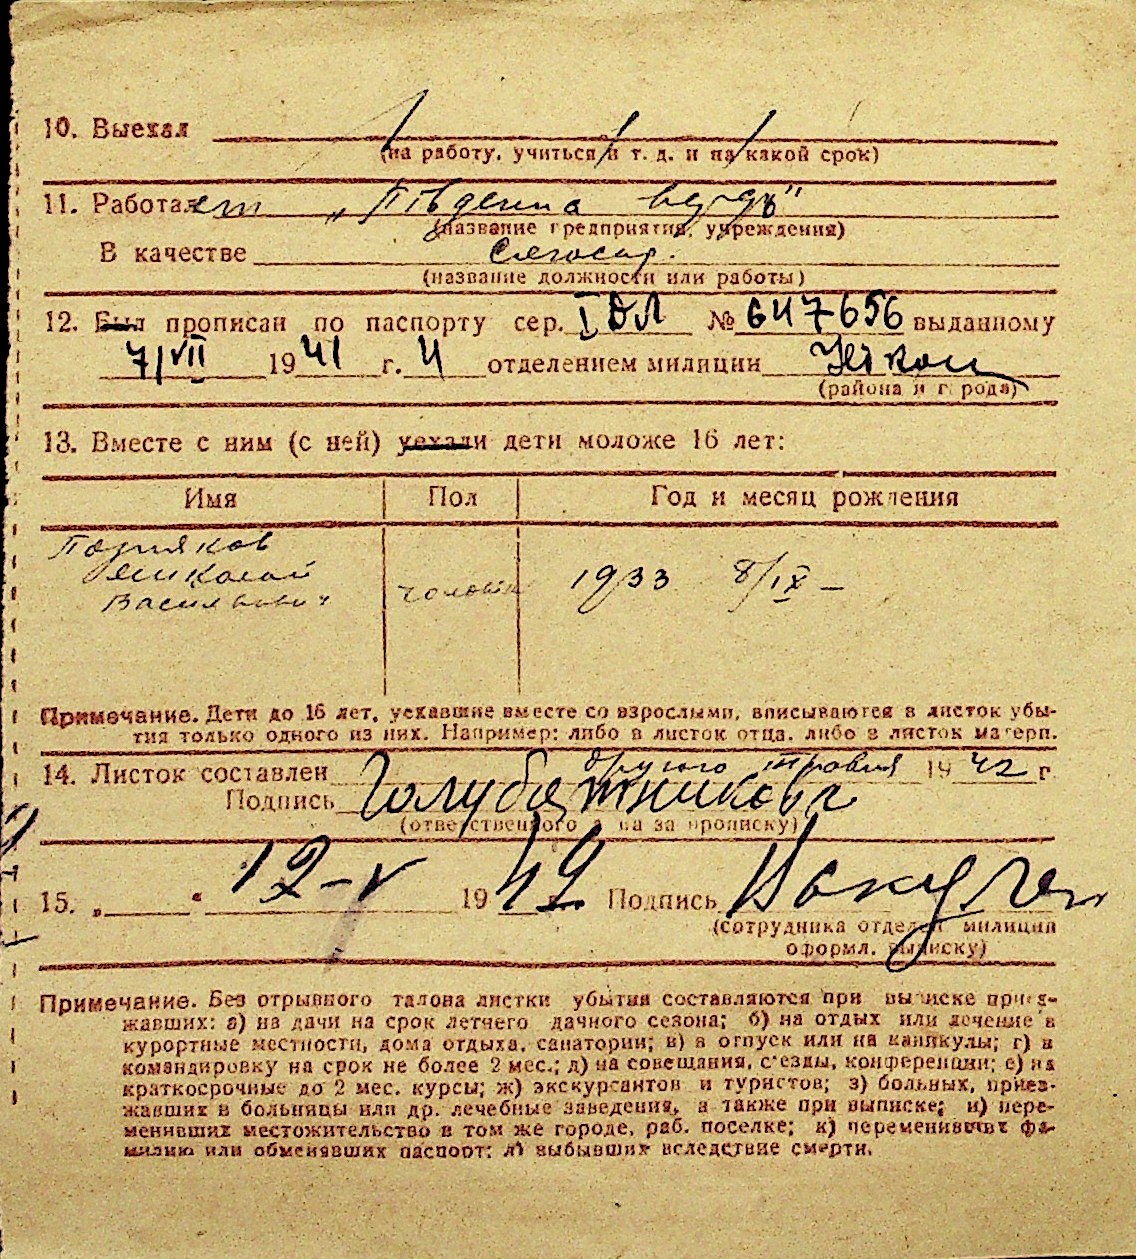 10. Выехал
(на работу, учиться и т. д. и на какой срок)
11. Работает „Південна верфь"
(название предприятия, учреждения)
В качестве слюсар.
(название должности или работы)
12. Был прописан по паспорту сер. I ДЛ № 647656 выданному
7/VII 1941 г. 4 отделением милиции
(района и города)
13. Вместе с ним (с ней) уехали дети моложе 16 лет:
Имя Пол Год и месяц рождения
Николай
Васильович 1933 8/IX –
Примечание. Дети до 16 лет, уехавшие вместе со взрослыми, вписываются в листок убы-
тия только одного из них. Например: либо в листок отца, либо в листок матери.
14. Листок составлен другого травня 1942 г
Подпись Голубятникова
(ответственного лица за прописку)
15. „ “ 12-V 1942 Подпись
(сотрудника отделен. милиции
оформл. выписку)
Примечание. Без отрывного талона листки убытия составляются при выписке приез-
жавших: а) на дачи на срок летнего дачного сезона; б) на отдых или лечение в
курортные местности, дома отдыха, санатории; в) в отпуск или на каникулы; г) в
командировку на срок не более 2 мес.; д) на совещания, с'езды, конференции; е) на
краткосрочные до 2 мес. курсы; ж) экскурсантов и туристов; з) больных, приез-
жавших в больницы или др. лечебные заведения, а также при выписке; и) пере-
менивших местожительство в том же городе, раб. поселке; к) переменивших фа-
милию или обменявших паспорт; л) выбывших вследствие смерти.